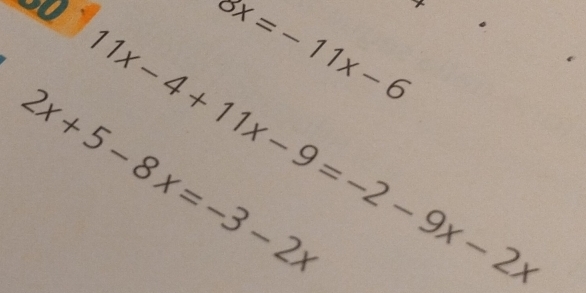 8x = -11x - 6
11x - 4 + 11x - 9 = -2 - 9x - 2x
2x + 5 - 8x = -3 - 2x